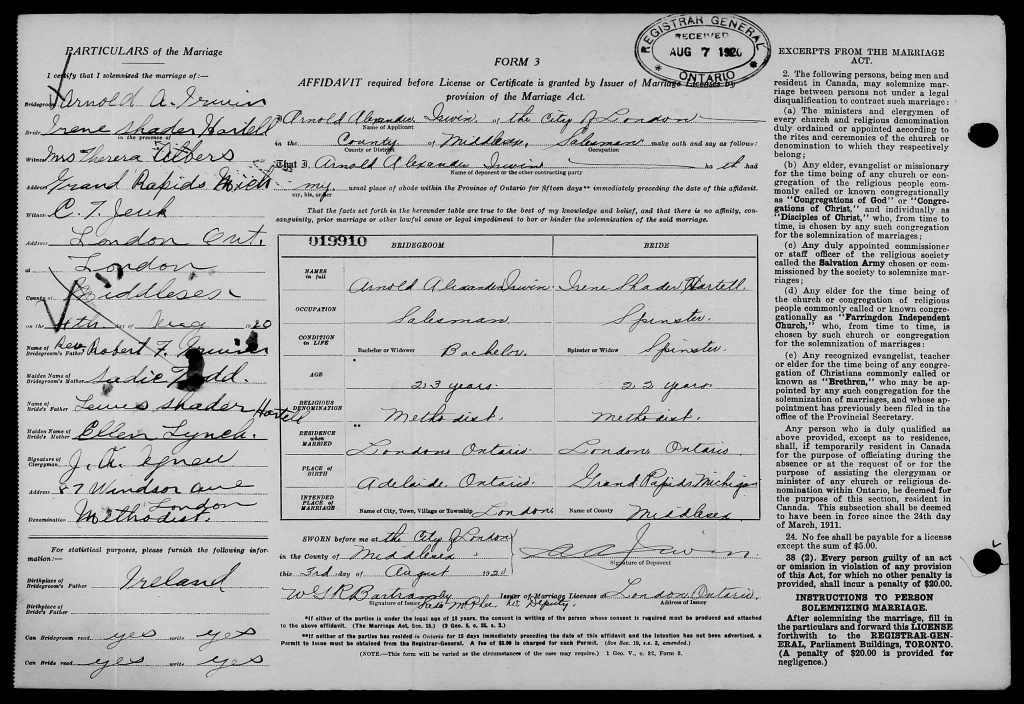 PARTICULARS of the Marriage
I certify that I solemnized the marriage of:—
Bridegroom Arnold A. Irwin
Bride Irene Shader Hartell
in the presence of
Witness Mrs Theresa Albers
Address Grand Rapids Mich
Witness C. T.
Address London Ont.
at London
County of Middlesex
on the 4th day of Aug 1920
Name of Bridegroom's Father Rev Robert F. Irwin
Maiden Name of Bridegroom's Mother Sadie Todd.
Name of Bride's Father Lewis Shader Hartell
Maiden Name of Bride's Mother Ellen Lynch.
Signature of Clergyman, J. A. Agnew
Address 87 Windsor Ave
London
Denomination Methodist.
For statistical purposes, please furnish the following information:—
Birthplace of Bridegroom's Father Ireland
Birthplace of Bride's Father
Can Bridegroom read yes write yes
Can Bride read yes write yes
REGISTRAR GENERAL
RECEIVED
AUG 7 1920
ONTARIO
FORM 3
AFFIDAVIT required before License or Certificate is granted by Issuer of Marriage Licenses by
provision of the Marriage Act.
I, Arnold Alexander Irwin, of the City of London
Name of Applicant
in the County of Middlesex, Salesman make oath and say as follows:
County or District Occupation
That I, Arnold Alexander Irwin has had
Name of deponent or the other contracting party
my usual place of abode within the Province of Ontario for fifteen days** immediately preceding the date of this affidavit.
my, his, or her
That the facts set forth in the hereunder table are true to the best of my knowledge and belief, and that there is no affinity, con-
sanguinity, prior marriage or other lawful cause or legal impediment to bar or hinder the solemnization of the said marriage.
019910 BRIDEGROOM BRIDE
NAMES in full Arnold Alexander Irwin Irene Shader Hartell
OCCUPATION Salesman Spinster.
CONDITION IN LIFE Bachelor or Widower Bachelor. Spinster or Widow Spinster.
AGE 23 years. 22 years.
RELIGIOUS DENOMINATION Methodist. Methodist.
RESIDENCE when MARRIED ** London Ontario London Ontario.
PLACE OF BIRTH Adelaide Ontario. Grand Rapids Michigan
INTENDED PLACE OF MARRIAGE Name of City, Town, Village or Township London Name of County Middlesex
SWORN before me at the City of London
in the County of Middlesex A A Irwin
Signature of Deponent
this 3rd day of August 1920
W G R Bartram Issuer of Marriage Licenses at London, Ontario.
Signature of Issuer by McPhee his Deputy. Address of Issuer
*If either of the parties is under the legal age of 18 years, the consent in writing of the person whose consent is required must be produced and attached
to the above affidavit. (The Marriage Act, Sec. 15.)
**If neither of the parties has resided in Ontario for 15 days immediately preceding the date of this affidavit and the intention has not been advertised, a
Permit to issue must be obtained from the Registrar-General. A fee of $5.00 is charged for such Permit. (See Sec. 19, s.s. 2, amended.)
(NOTE.—This form will be varied as the circumstances of the case may require.) 1 Geo. V., c. 32, Form 3.
EXCERPTS FROM THE MARRIAGE
ACT.
2. The following persons, being men and
resident in Canada, may solemnize mar-
riage between persons not under a legal
disqualification to contract such marriage:
(a) The ministers and clergymen of
every church and religious denomination
duly ordained or appointed according to
the rites and ceremonies of the church or
denomination to which they respectively
belong;
(b) Any elder, evangelist or missionary
for the time being of any church or con-
gregation of the religious people com-
monly called or known congregationally
as "Congregations of God" or "Congre-
gations of Christ," and individually as
"Disciples of Christ," who, from time to
time, is chosen by any such congregation
for the solemnization of marriages;
(c) Any duly appointed commissioner
or staff officer of the religious society
called the Salvation Army chosen or com-
missioned by the society to solemnize mar-
riages;
(d) Any elder for the time being of
the church or congregation of religious
people commonly called or known congre-
gationally as "Farringdon Independent
Church," who, from time to time, is
chosen by such church or congregation
for the solemnization of marriages:
(e) Any recognized evangelist, teacher
or elder for the time being of any congre-
gation of Christians commonly called or
known as "Brethren," who may be ap-
pointed by any such congregation for the
solemnization of marriages, and whose ap-
pointment has previously been filed in the
office of the Provincial Secretary.
Any person who is duly qualified as
above provided, except as to residence,
shall, if temporarily resident in Canada
for the purpose of officiating during the
absence or at the request of or for the
purpose of assisting the clergyman or
minister of any church or religious de-
nomination within Ontario, be deemed for
the purpose of this section, resident in
Canada. This subsection shall be deemed
to have been in force since the 24th day
of March, 1911.
24. No fee shall be payable for a license
except the sum of $5.00.
38 (2). Every person guilty of an act
or omission in violation of any provision
of this Act, for which no other penalty is
provided, shall incur a penalty of $20.00.
INSTRUCTIONS TO PERSON
SOLEMNIZING MARRIAGE.
After solemnizing the marriage, fill in
the particulars and forward this LICENSE
forthwith to the REGISTRAR-GEN-
ERAL, Parliament Buildings, TORONTO.
(A penalty of $20.00 is provided for
negligence.)